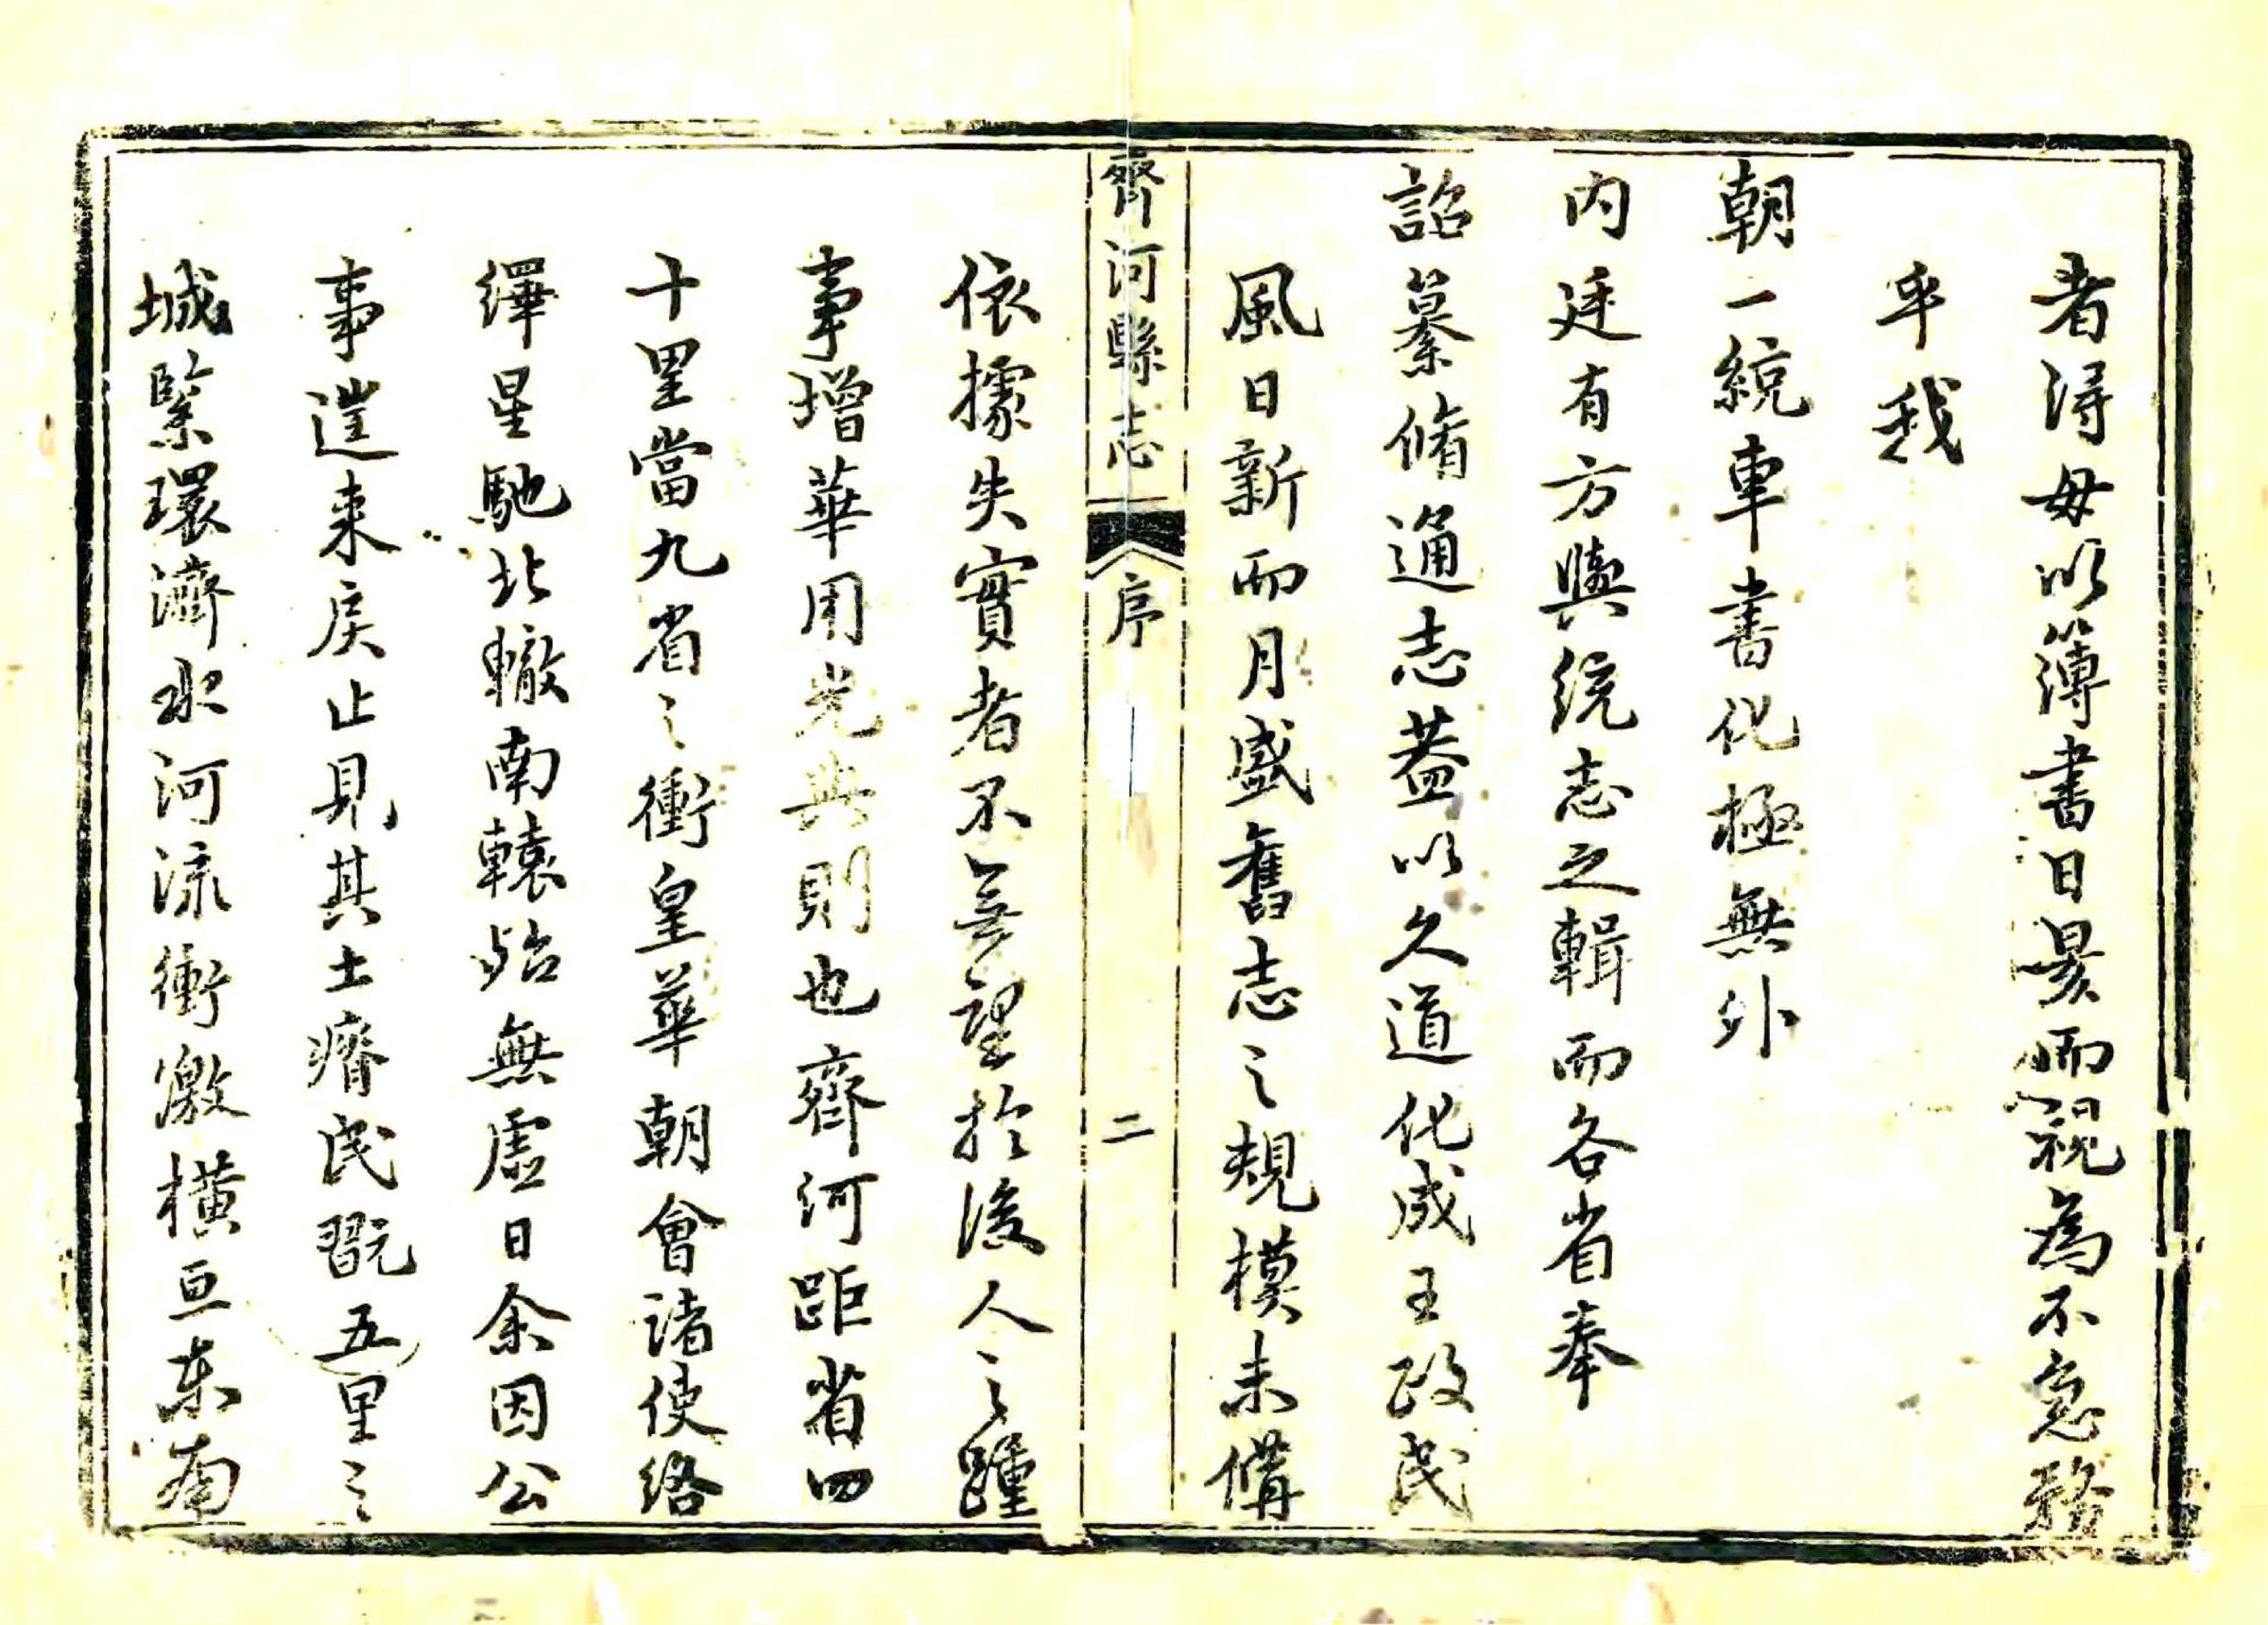 者得毋以簿書日冗而視為不急務
乎我
朝一統車書化極無外
内廷有方輿統志之輯而各省奉
詔纂脩通志葢以久道化成王政民
風日新而月盛舊志之規模未備
齊河縣志
序
二
依據失實者不無望於後人之踵
事增華用光典則也齊河距省四
十里當九省之衝皇華朝會諸使絡
繹星馳北轍南轅殆無虚日余因公
事遄来戾止見其土瘠民翫五里之
城緊環濟水河流衝激横亘東南